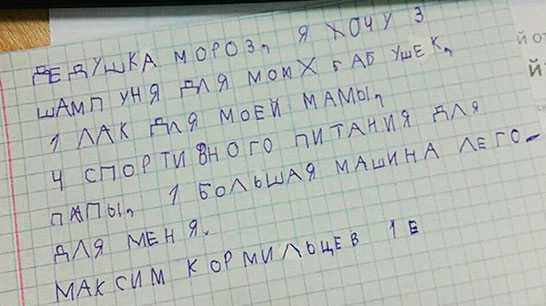 ДЕДУШКА МОРОЗ, Я ХОЧУ 3
ШАМПУНЯ ДЛЯ МОИХ БАБУШЕК,
1 ЛАК ДЛЯ МОЕЙ МАМЫ,
4 СПОРТИВНОГО ПИТАНИЯ ДЛЯ
ПАПЫ, 1 БОЛЬШАЯ МАШИНА ЛЕГО-
ДЛЯ МЕНЯ.
МАКСИМ КОРМИЛЬЦЕВ 1 Е